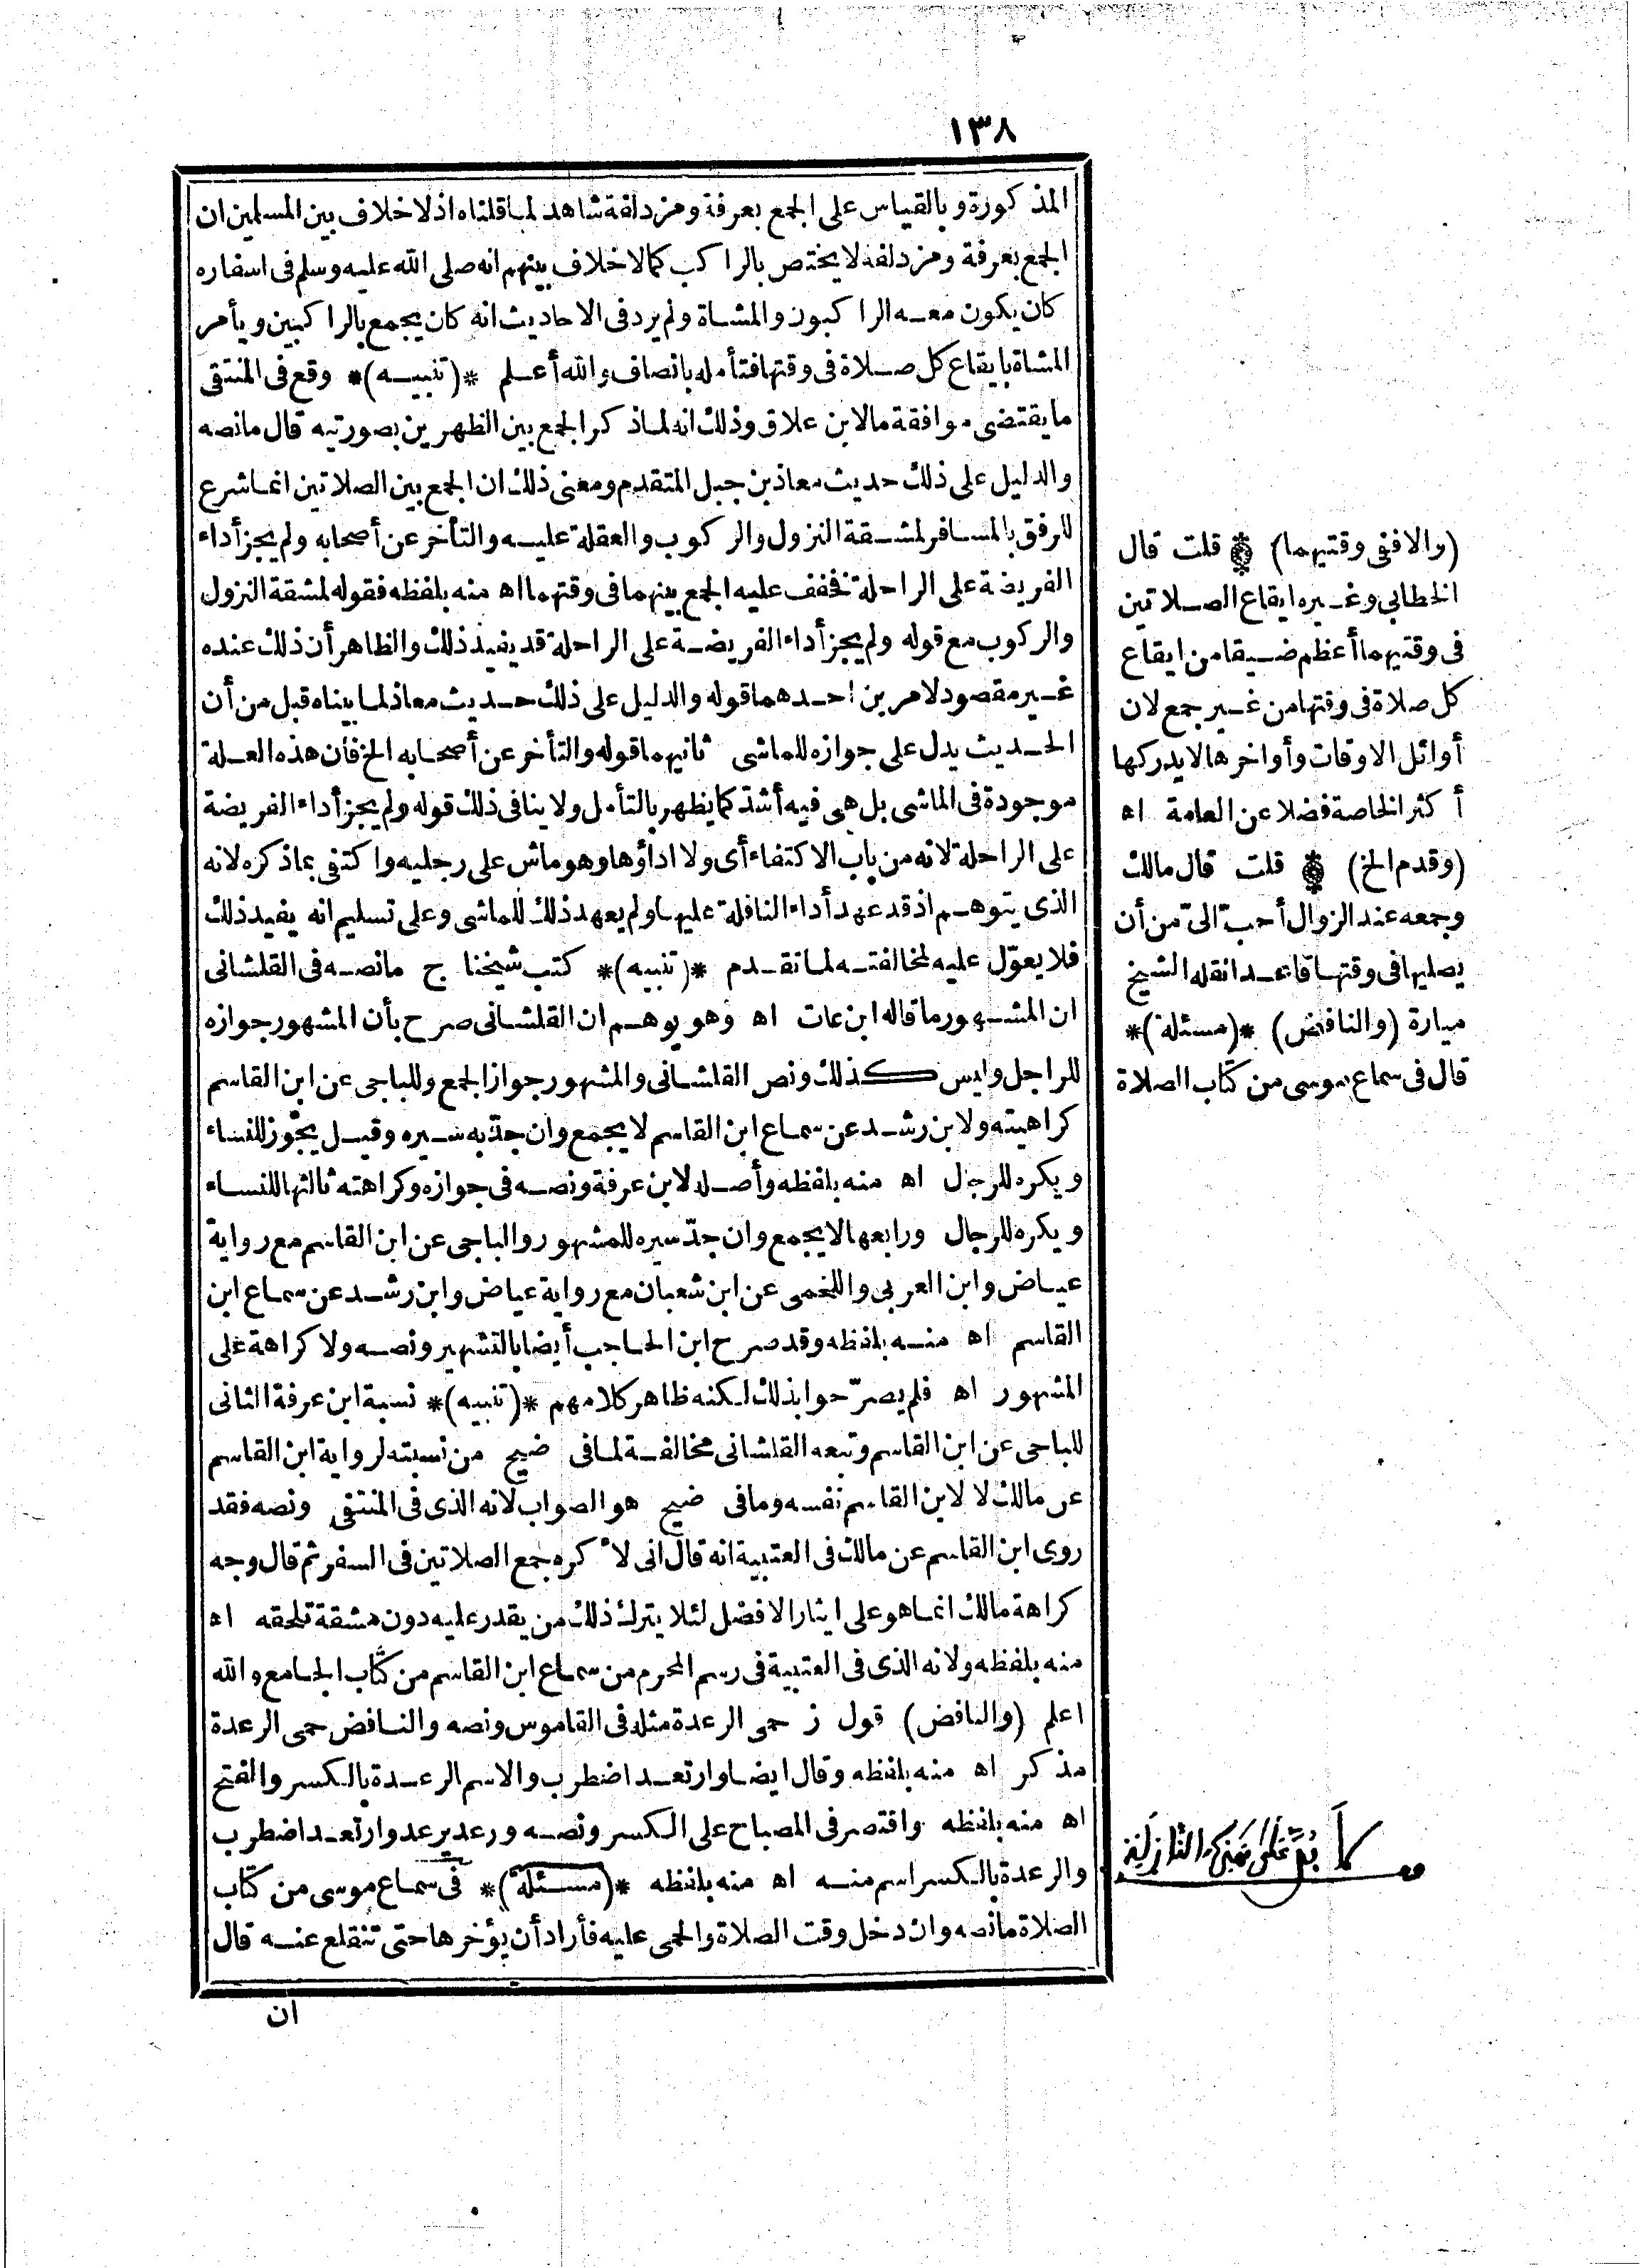 ١٣٨
المذكورة وبالقياس على الجمع بعرفة ومزدلفة شاهد لما قلناه اذ لا خلاف بين المسلمين ان
الجمع بعرفة ومزدلفة لا يختص بالراكب كما لا خلاف بينهم انه صلى الله عليه وسلم فى اسفاره
كان يكون معه الراكبون والمشاة ولم يرد فى الاحاديث انه كان يجمع بالراكبين ويأمر
المشاة بايقاع كل صلاة فى وقتها فتأمله بانصاف والله أعلم *(تنبيه)* وقع فى المنتقى
ما يقتضى موافقة ما لابن علاق وذلك انه لما ذكر الجمع بين الظهرين بصورتيه قال مانصه
والدليل على ذلك حديث معاذ بن جبل المتقدم ومعنى ذلك ان الجمع بين الصلاتين انما شرع
للرفق بالمسافر لمشقة النزول والركوب والعقلة عليه والتأخر عن أصحابه ولم يجز أداء
الفريضة على الراحلة فخفف عليه الجمع بينهما فى وقتهما اه منه بلفظه فقوله لمشقة النزول
والركوب مع قوله ولم يجز أداء الفريضة على الراحلة قد يفيد ذلك والظاهر أن ذلك عنده
غير مقصود لامرين احدهما قوله والدليل على ذلك حديث معاذ لما بيناه قبل من أن
الحديث يدل على جوازه للماشى ثانيهما قوله والتأخر عن أصحابه الخ فأن هذه العلة
موجودة فى الماشى بل هى فيه أشد كما يظهر بالتأمل ولا ينافى ذلك قوله ولم يجز أداء الفريضة
على الراحلة لانه من باب الاكتفاء أى ولا اداؤها وهو ماش على رجليه واكتفى بماذكره لانه
الذى يتوهم اذ قد عهد أداء النافلة عليها ولم يعهد ذلك للماشى وعلى تسليم انه يفيد ذلك
فلا يعوّل عليه لمخالفته لما تقدم *(تنبيه)* كتب شيخنا ج مانصه فى القلشانى
ان المشهور ما قاله ابن عات اه وهو يوهم ان القلشانى صرح بأن المشهور جوازه
للراجل وليس كذلك ونص القلشانى والمشهور جواز الجمع وللباجى عن ابن القاسم
كراهيته ولابن رشد عن سماع ابن القاسم لا يجمع وان جدّ به سيره وقيل يجوز للنساء
ويكره للرجال اه منه بلفظه وأصله لابن عرفة ونصه فى جوازه وكراهته ثالثها للنساء
ويكره للرجال ورابعها لا يجمع وان جدّ سيره للمشهور والباجى عن ابن القاسم مع رواية
عياض وابن العربى واللخمى عن ابن شعبان مع رواية عياض وابن رشد عن سماع ابن
القاسم اه منه بلفظه وقد صرح ابن الحاجب أيضا بالتشهير ونصه ولا كراهة على
المشهور اه فلم يصرّحوا بذلك لكنه ظاهر كلامهم *(تنبيه)* نسبة ابن عرفة الثانى
للباجى عن ابن القاسم وتبعه القلشانى مخالفة لما فى ضيح من نسبته لرواية ابن القاسم
عن مالك لا لابن القاسم نفسه وما فى ضيح هو الصواب لانه الذى فى المنتقى ونصه فقد
روى ابن القاسم عن مالك فى العتبية انه قال انى لأكره جمع الصلاتين فى السفر ثم قال وجه
كراهة مالك انما هو على ايثار الافضل لئلا يترك ذلك من يقدر عليه دون مشقة تلحقه اه
منه بلفظه ولانه الذى فى العتبية فى رسم المحرم من سماع ابن القاسم من كتاب الجامع والله
اعلم (والنافض) قول ز حمى الرعدة مثله فى القاموس ونصه والنافض حمى الرعدة
مذكر اه منه بلفظه وقال ايضا وارتعد اضطرب والاسم الرعدة بالكسر والفتح
اه منه بلفظه واقتصر فى المصباح على الكسر ونصه ورعد يرعد وارتعد اضطرب
والرعدة بالكسر اسم منه اه منه بلفظه *(مسئلة)* فى سماع موسى من كتاب
الصلاة مانصه وان دخل وقت الصلاة والحمى عليه فأراد أن يؤخرها حتى تنقلع عنه قال
ان
(والا ففى وقتيهما) قلت قال
الخطابى وغيره ايقاع الصلاتين
فى وقتيهما أعظم ضيقا من ايقاع
كل صلاة فى وقتها من غير جمع لان
أوائل الاوقات وأواخرها لا يدركها
أكثر الخاصة فضلا عن العامة اه
(وقدم الخ) قلت قال مالك
وجمعه عند الزوال أحبّ الىّ من أن
يصليها فى وقتها قاعدا نقله الشيخ
ميارة (والنافض) *(مسئلة)*
قال فى سماع موسى من كتاب الصلاة